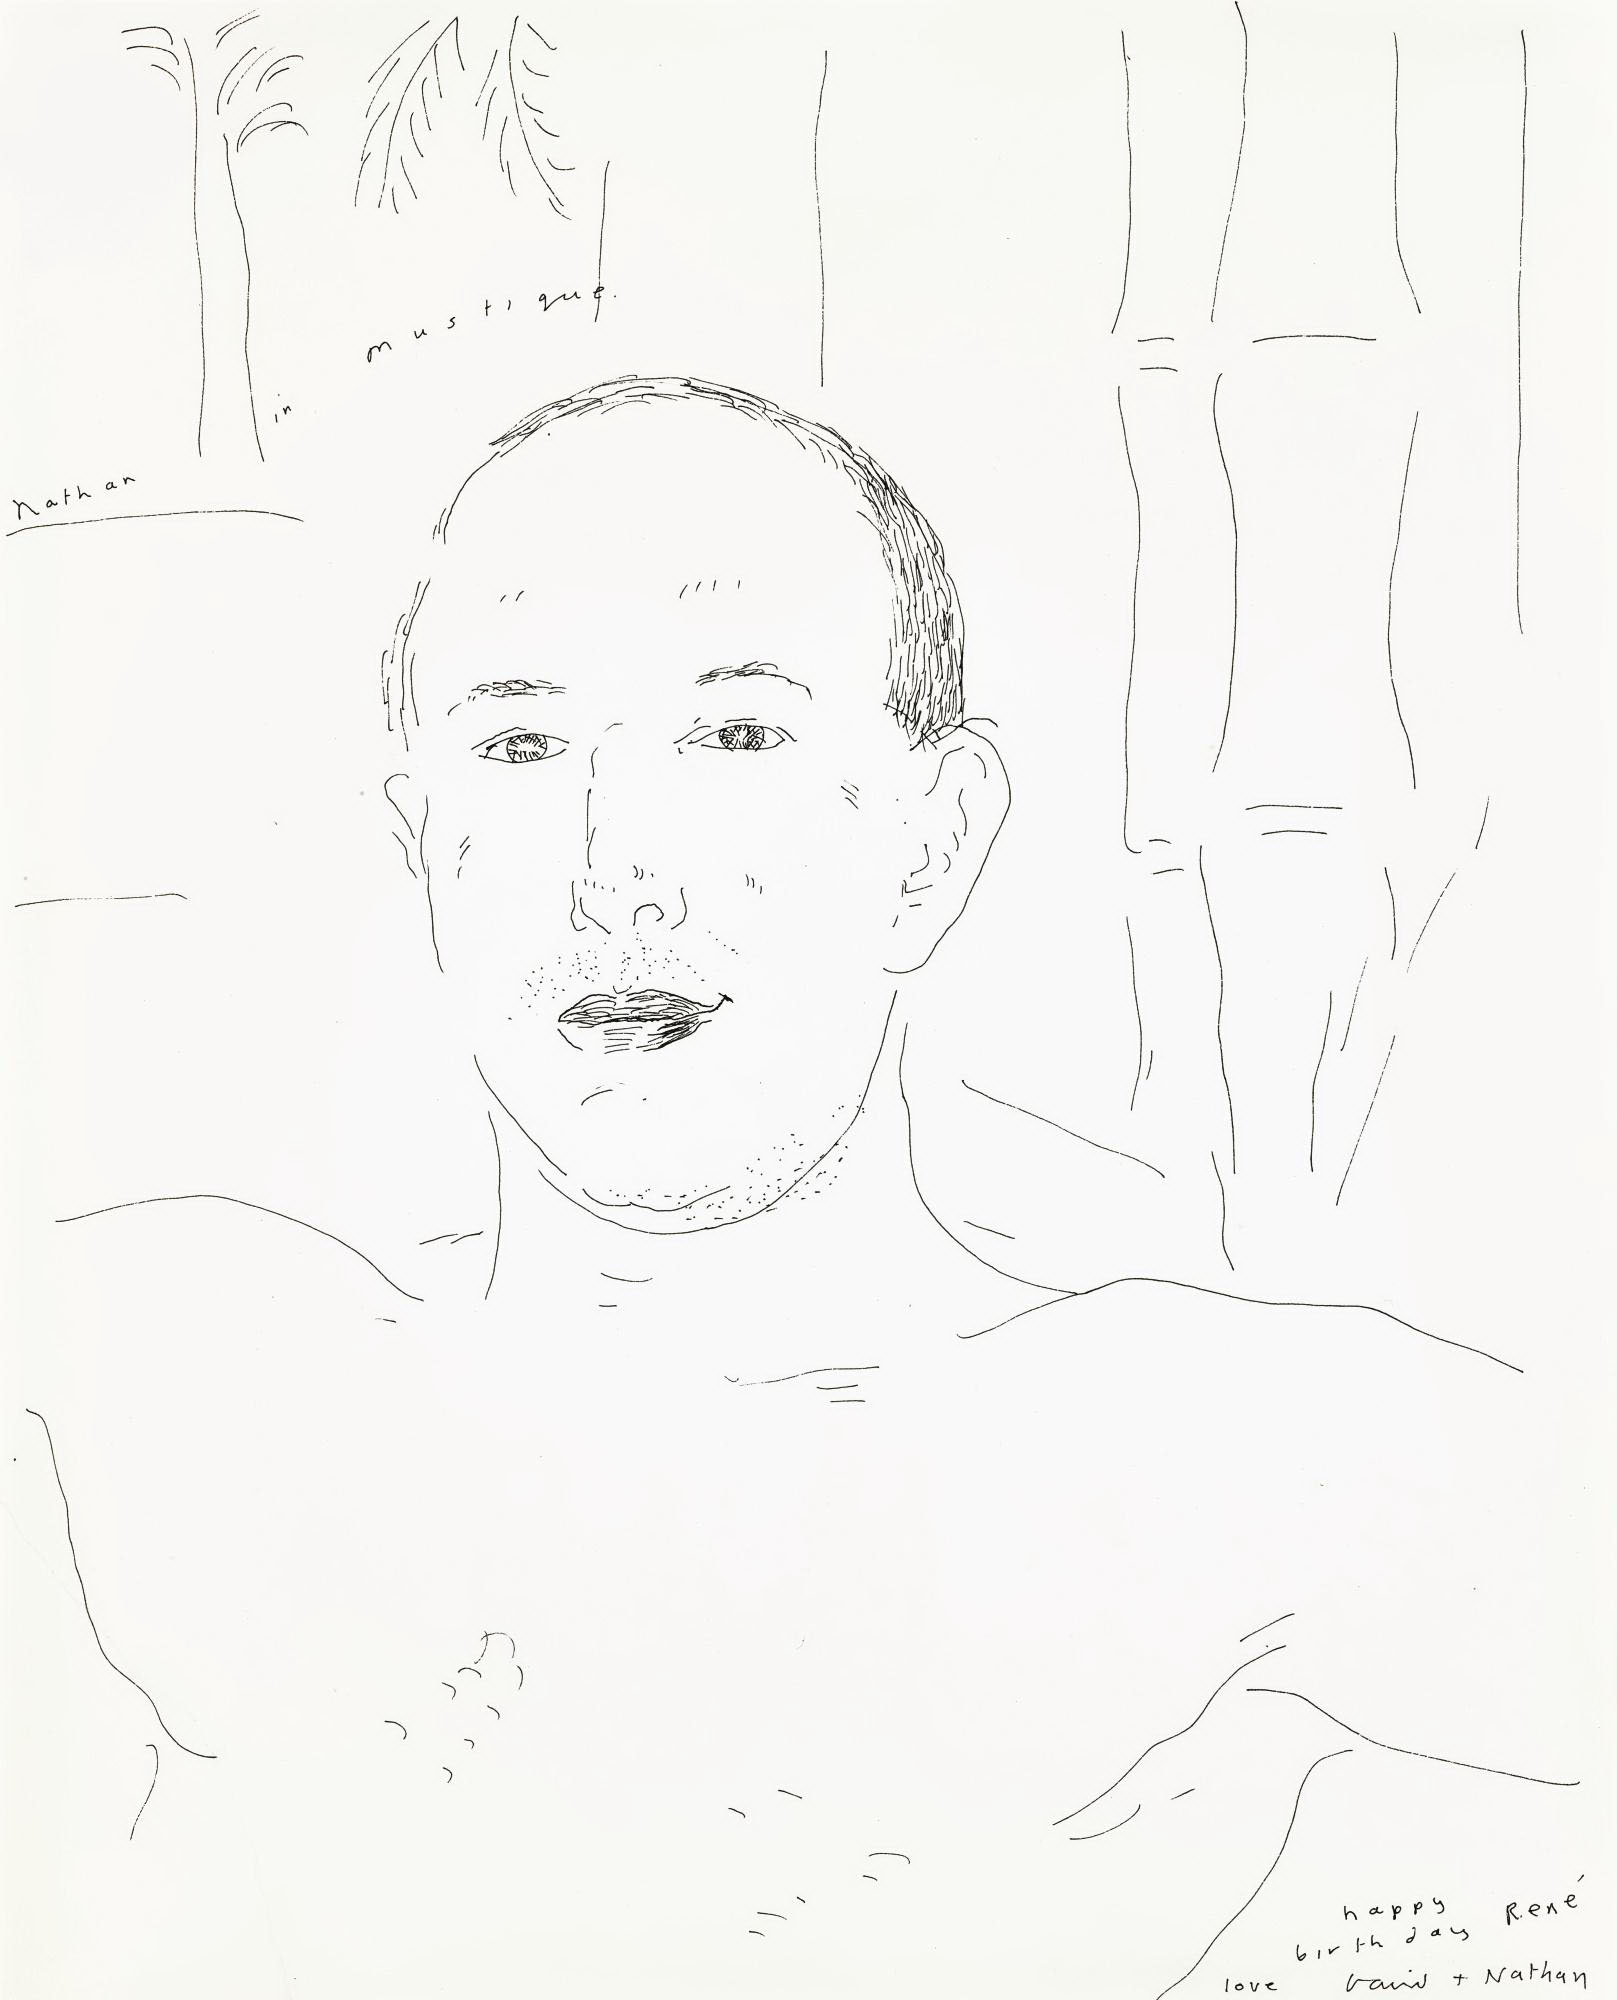 Nathan in mustique.
happy René
birthday
love David + Nathan